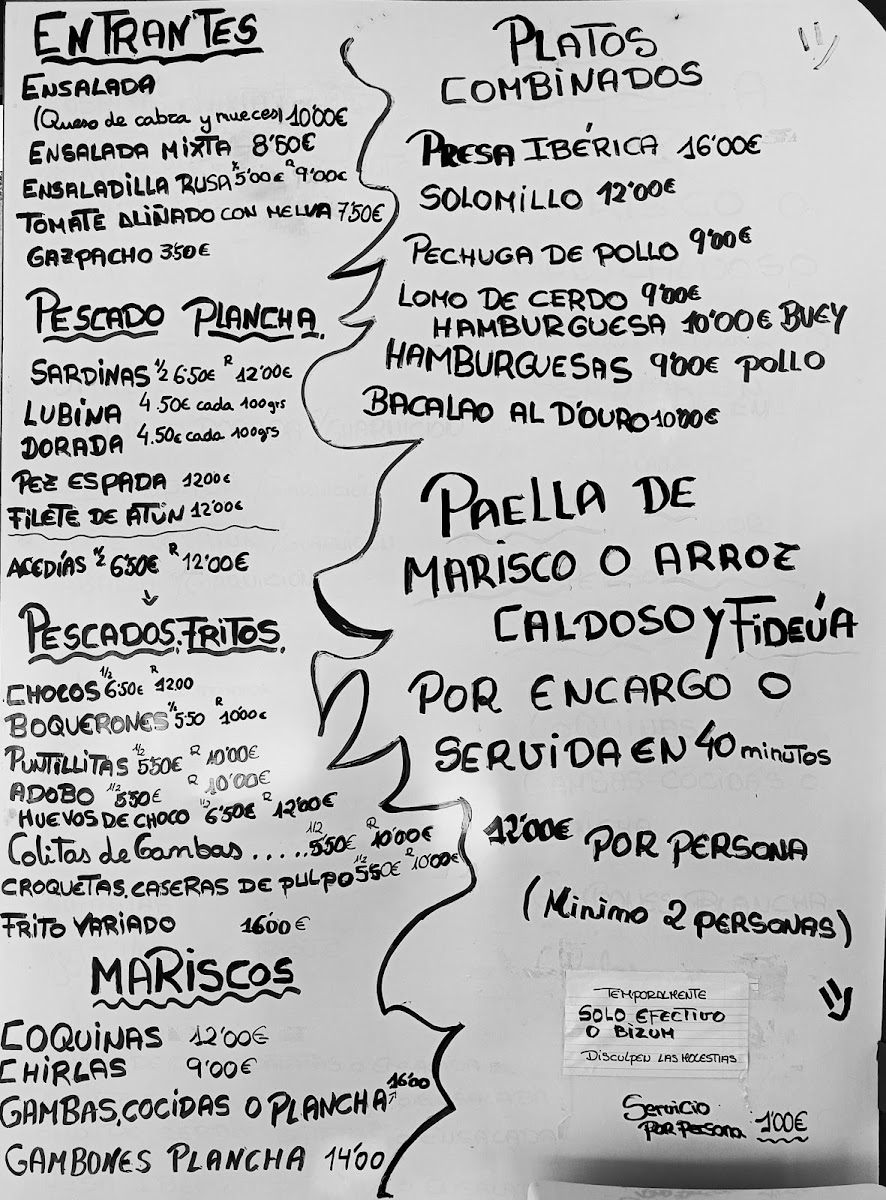 ENTRANTES
ENSALADA
(Queso de cabra y nueces) 10'00€
ENSALADA MIXTA 8'50€
ENSALADILLA RUSA ½ 5'00€ R 9'00€
TOMATE ALIÑADO CON MELVA 7'50€
GAZPACHO 3'50€
PESCADO PLANCHA.
SARDINAS ½ 6'50€ R 12'00€
LUBINA 4.50€ cada 100grs
DORADA 4.50€ cada 100grs
PEZ ESPADA 12'00€
FILETE DE ATÚN 12'00€
ACEDÍAS ½ 6'50€ R 12'00€
PESCADOS, FRITOS.
CHOCOS ½ 6'50€ R 12'00
BOQUERONES ½ 5'50 R 10'00€
PUNTILLITAS ½ 5'50€ R 10'00€
ADOBO 1/2 5'50€ R 10'00€
HUEVOS DE CHOCO 1/2 6'50€ R 12'00€
Colitas de Gambas ..... 1/2 5'50€ R 10'00€
CROQUETAS, CASERAS DE PULPO 1/2 5'50€ R 10'00€
FRITO VARIADO 16'00€
MARISCOS
COQUINAS 12'00€
CHIRLAS 9'00€
GAMBAS, COCIDAS O PLANCHA 16'00
GAMBONES PLANCHA 14'00
PLATOS
COMBINADOS
PRESA IBÉRICA 16'00€
SOLOMILLO 12'00€
PECHUGA DE POLLO 9'00€
LOMO DE CERDO 9'00€
HAMBURGUESA 10'00€ BUEY
HAMBURGUESAS 9'00€ POLLO
BACALAO AL D'OURO 10'00€
PAELLA DE
MARISCO O ARROZ
CALDOSO Y FIDEÚA
POR ENCARGO O
SERVIDA EN 40 minutos
12'00€ POR PERSONA
(Minimo 2 PERSONAS)
TEMPORALMENTE
SOLO EFECTIVO
O BIZUM
DISCULPEN LAS MOLESTIAS
Servicio
Por Persona 1'00€